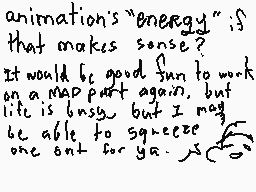 animation's "energy" if
that makes sense?
It would be good fun to work
on a MAP part again, but
life is busy, but I may
be able to squeeze
one out for ya.